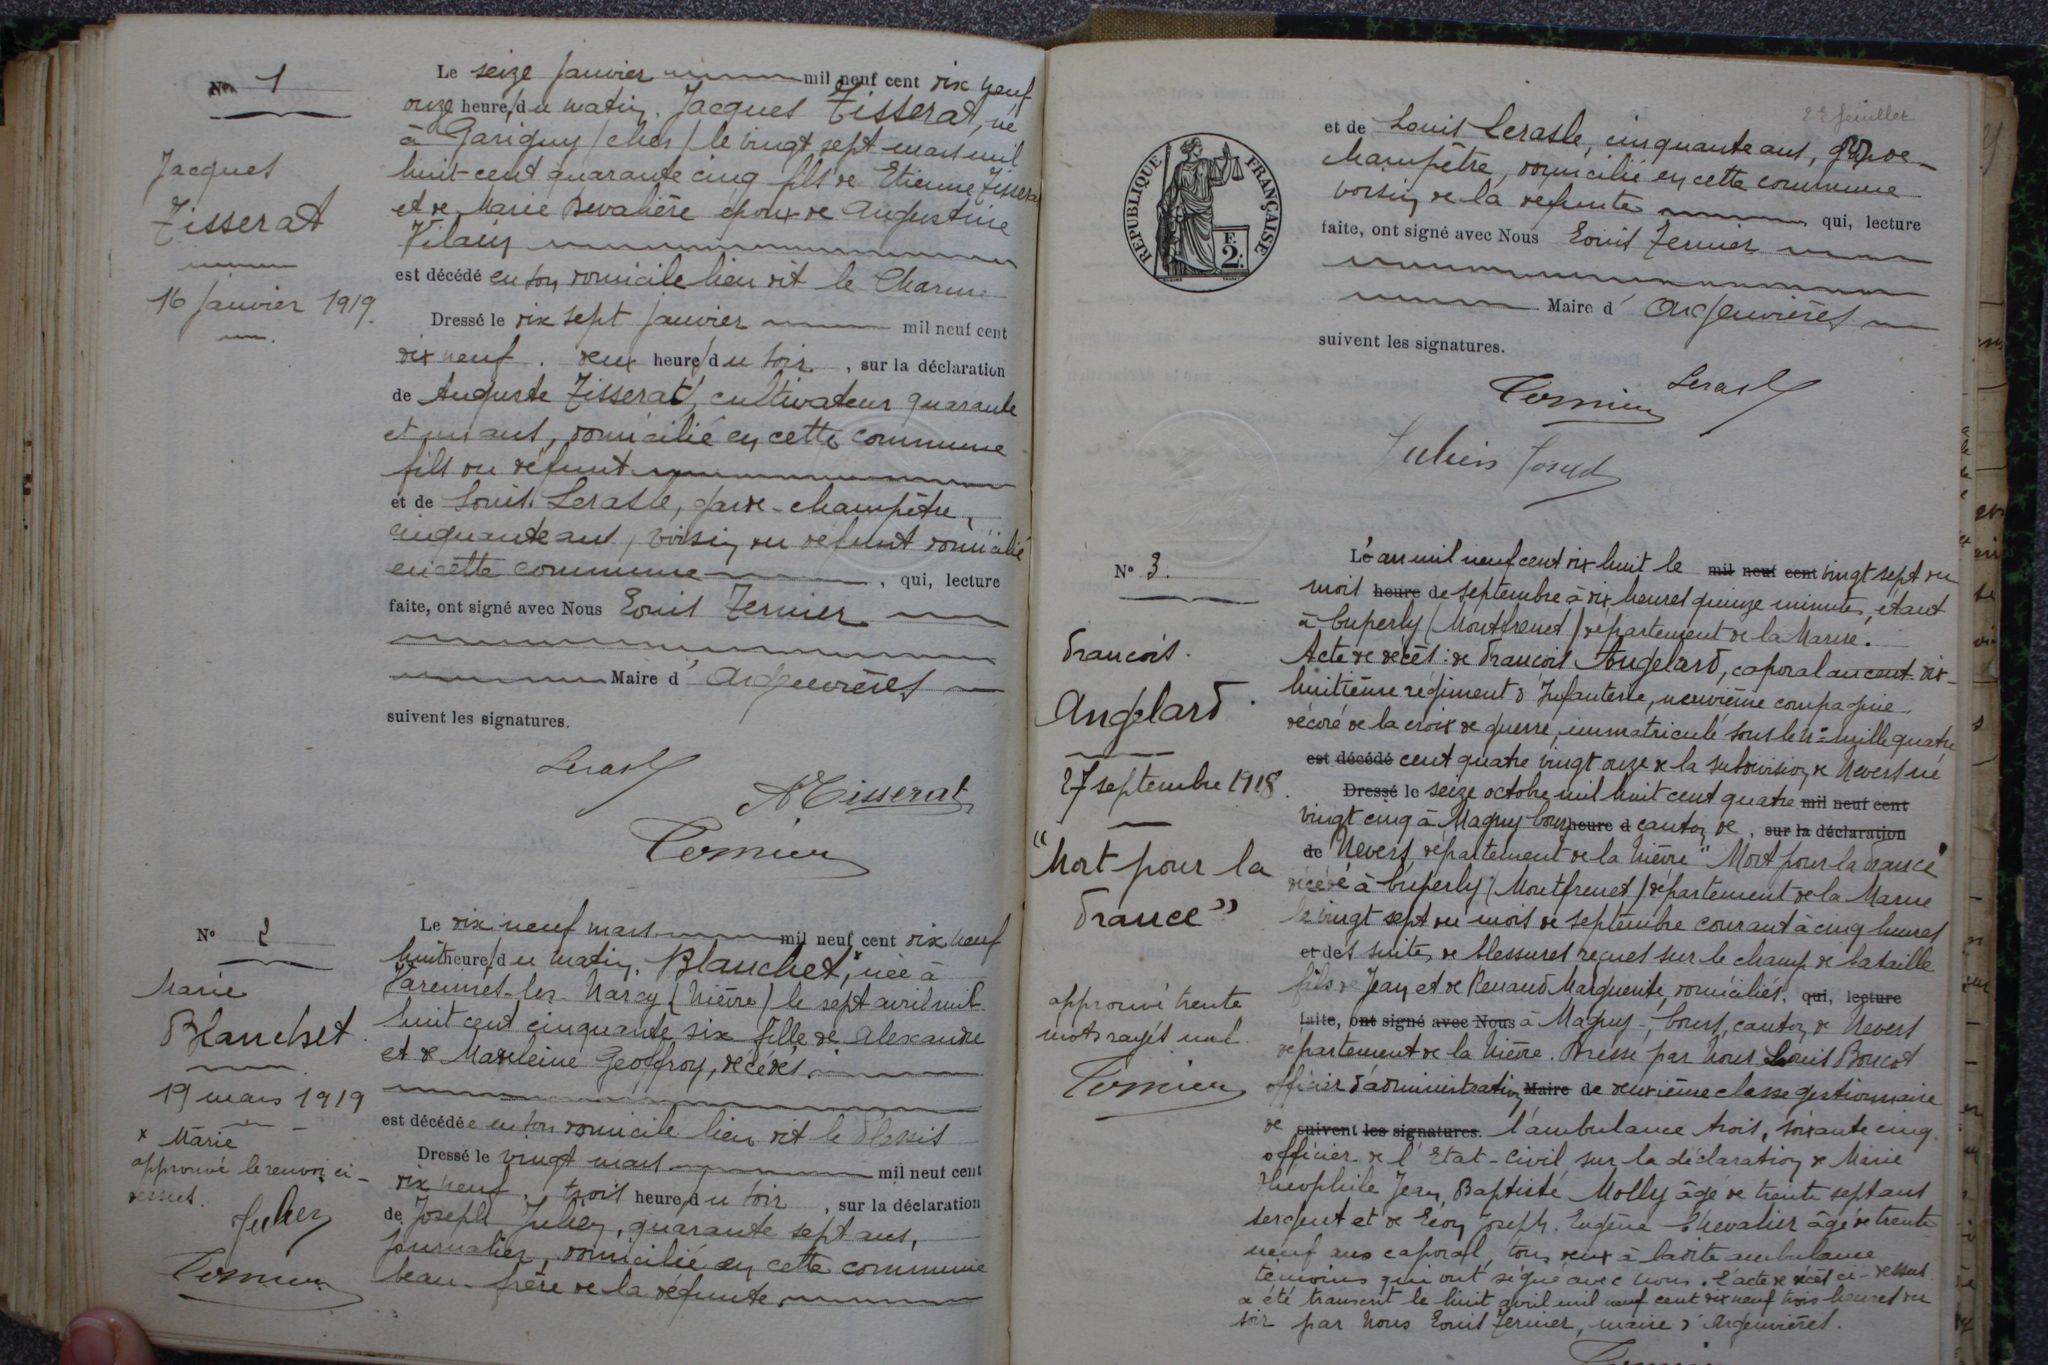 No 1
Jacques
Tisserat
16 janvier 1919.
Le seize janvier mil neuf cent dix neuf
onze heure du matin, Jacques Tisserat, né
à Garigny (Cher) le vingt sept mars mil
huit-cent quarante cinq fils de Etienne Tisserat
et de Marie Devalière époux de Augustine
Vilain
est décédé en son domicile lieu dit le Charme
Dressé le dix sept janvier mil neuf cent
dix neuf. deux heure du soir, sur la déclaration
de Auguste Tisserat, cultivateur quarante
et un ans, domicilié en cette commune
fils du défunt
et de Louis Lerasle, garde-champêtre,
cinquante ans, voisin du défunt domicilié
en cette commune, qui, lecture
faite, ont signé avec Nous Louis Ternier
Maire d'Argenvières
suivent les signatures.
Lerasle
A Tisserat
Ternier
No 2
Marie
Blanchet
19 mars 1919
x Marie
approuvé le renvoi ci-
dessus.
Julien
Ternier
Le dix neuf mars mil neuf cent dix neuf
huit heure du matin. Blanchet,x née à
Varennes-les-Narcy (Nièvre) le sept avril mil
huit cent cinquante six fille de Alexandre
et de Madeleine Geoffroy, décédés.
est décédée en son domicile lieu dit le Plessis
Dressé le vingt mars mil neuf cent
dix neuf. trois heure du soir, sur la déclaration
de Joseph Julien, quarante sept ans,
journalier, domicilié en cette commune
beau-frère de la défunte,
2e feuillet
REPUBLIQUE FRANÇAISE
F.
2.
et de Louis Lerasle, cinquante ans, garde-
champêtre, domicilié en cette commune
voisin de la défunte qui, lecture
faite, ont signé avec Nous Louis Ternier
Maire d'Argenvières
suivent les signatures.
Lerasle
Ternier
Julien Joseph
No 3.
François.
Angelard.
27 septembre 1918.
"Mort pour la
France"
approuvé trente
mots rayés nul.
Ternier
L'an mil neuf cent dix huit le mil neuf cent vingt sept du
mois heure de septembre à dix heures quinze minutes, étant
à Cuperly (Montfrenet) département de la Marne.
Acte de décès: de François Angelard, caporal au cent-dix-
huitième régiment d'Infanterie, neuvième compagnie
décoré de la croix de guerre, immatriculé sous le no mille quatre
est décédé cent quatre vingt onze de la subdivision de Nevers né
Dressé le seize octobre mil huit cent quatre mil neuf cent
vingt cinq à Magny Cours heure d canton de, sur la déclaration
de Nevers, département de la Nièvre "Mort pour la France"
décédé à Cuperly (Montfrenet) département de la Marne
le vingt sept du mois de septembre courant à cinq heures
et des suites de blessures reçues sur le champ de bataille
fils de Jean et de Renaud Marguerite, domiciliés, qui, lecture
faite, ont signé avec Nous à Magny-Cours, canton de Nevers
département de la Nièvre. Dressé par Nous Louis Boucot
officier d'administration Maire de deuxième classe gestionnaire
de suivent les signatures. l'ambulance trois, soixante cinq.
officier de l'Etat-Civil sur la déclaration de Marie
Théophile Jean Baptiste Molly âgé de trente sept ans
sergent et de Léon Joseph Eugène Chevalier âgé de trente
neuf ans caporal, tous deux à ladite ambulance
témoins qui ont signé avec nous. L'acte de décès ci-dessus
a été transcrit le huit avril mil neuf cent dix neuf trois heures du
soir par Nous Louis Ternier, maire d'Argenvières.
Ternier